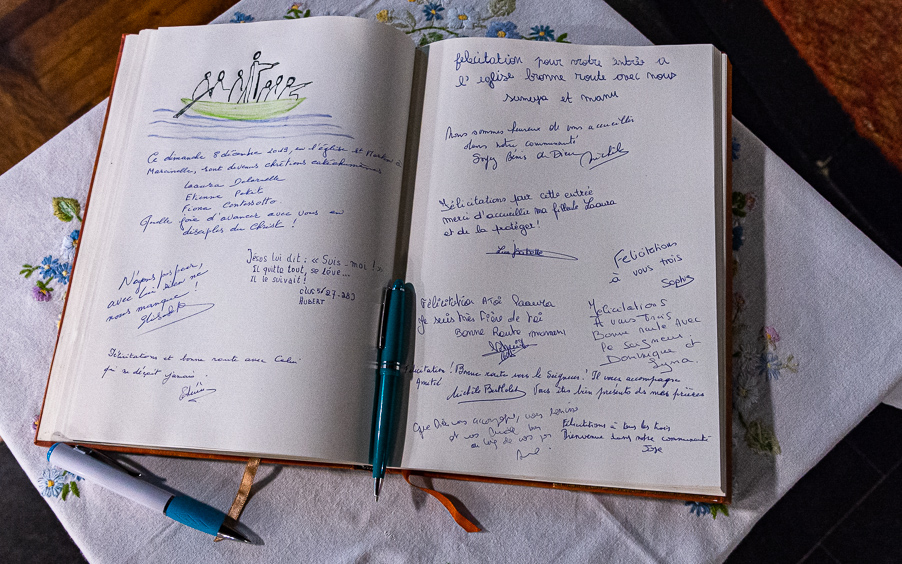 Ce dimanche 8 décembre 2019, en l'église St Martin à
Marcinelle, sont devenus chrétiens catéchumènes
Laoura
Etienne Petit
Fiona
Quelle joie d'avancer avec vous en
disciples du Christ !
N'ayons pas peur,
avec lui rien ne
nous manque !
Jésus lui dit : « Suis-moi ! »
Il quitta tout, se lève...
Il le suivait !
HUBERT
Félicitations et bonne route avec Celui
qui ne déçoit jamais.
felicitation pour votre entrés a
l'eglise bronne route avec nous
sumeya et manu
Nous sommes heureux de vous accueillir
dans notre communauté
Michel
Félicitations pour cette entrée
merci d'accueillir ma filleule Laoura
et de la protéger !
Felicitations
à vous trois
Sophy
Félicitation A toi Laoura
Je suis très fière de toi
Bonne Route
Félicitations
A vous trois
Bonne route Avec
le Seigneur
Dominique et
! Bonne route vers le Seigneur ! Il vous accompagne
Vous êtes bien présents ds mes prières
Que Dieu vous accompagne, vous
et vous guide
au long de vos jours
Félicitations à tous les trois
Bienvenue dans notre communauté